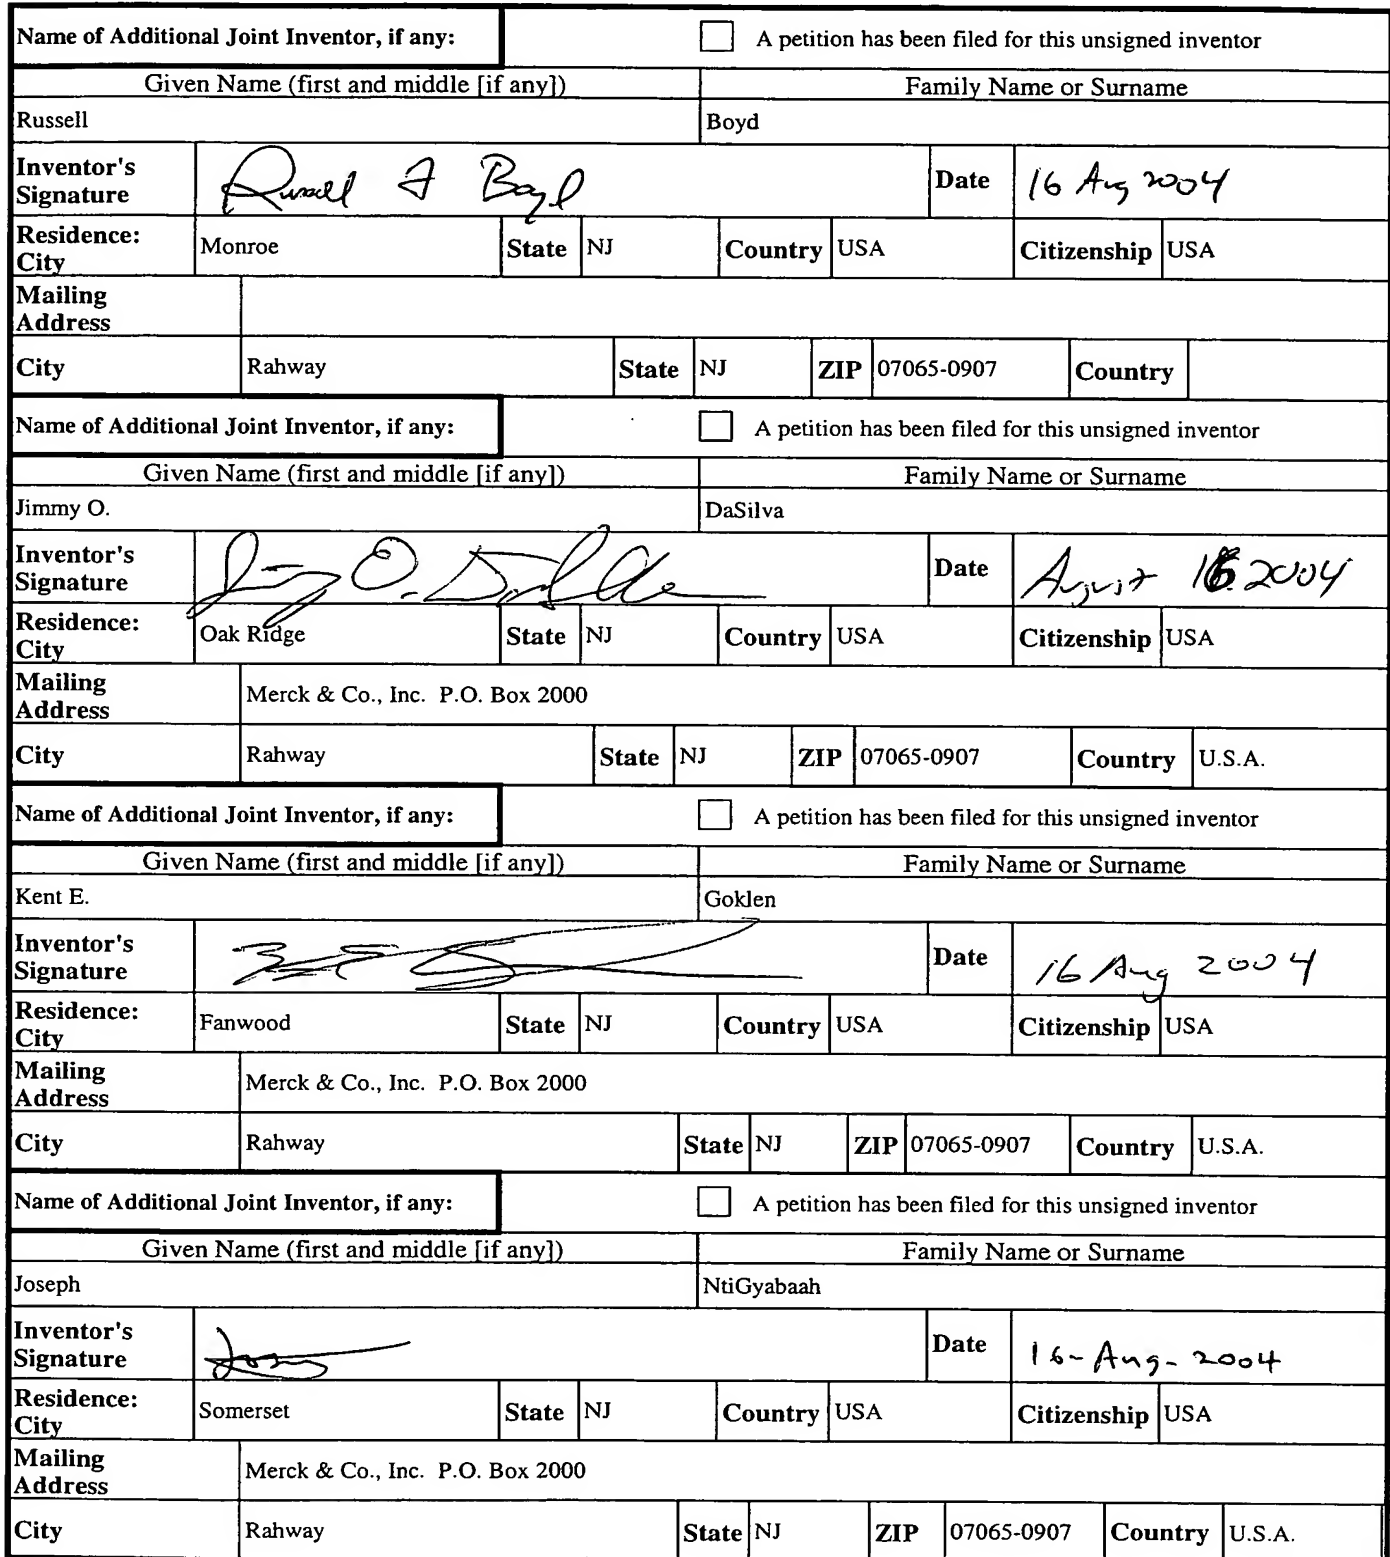 Name of Additional Joint Inventor, if any: A petition has been filed for this unsigned inventor
Given Name (first and middle [if any]) Family Name or Surname
Russell Boyd
Inventor's Signature Russell F Boyd Date 16 Aug 2004
Residence: City Monroe State NJ Country USA Citizenship USA
Mailing Address
City Rahway State NJ ZIP 07065-0907 Country
Name of Additional Joint Inventor, if any: A petition has been filed for this unsigned inventor
Given Name (first and middle [if any]) Family Name or Surname
Jimmy O. DaSilva
Inventor's Signature Jimmy O. DaSilva Date August 16 2004
Residence: City Oak Ridge State NJ Country USA Citizenship USA
Mailing Address Merck & Co., Inc. P.O. Box 2000
City Rahway State NJ ZIP 07065-0907 Country U.S.A.
Name of Additional Joint Inventor, if any: A petition has been filed for this unsigned inventor
Given Name (first and middle [if any]) Family Name or Surname
Kent E. Goklen
Inventor's Signature Date 16 Aug 2004
Residence: City Fanwood State NJ Country USA Citizenship USA
Mailing Address Merck & Co., Inc. P.O. Box 2000
City Rahway State NJ ZIP 07065-0907 Country U.S.A.
Name of Additional Joint Inventor, if any: A petition has been filed for this unsigned inventor
Given Name (first and middle [if any]) Family Name or Surname
Joseph NtiGyabaah
Inventor's Signature Date 16-Aug-2004
Residence: City Somerset State NJ Country USA Citizenship USA
Mailing Address Merck & Co., Inc. P.O. Box 2000
City Rahway State NJ ZIP 07065-0907 Country U.S.A.